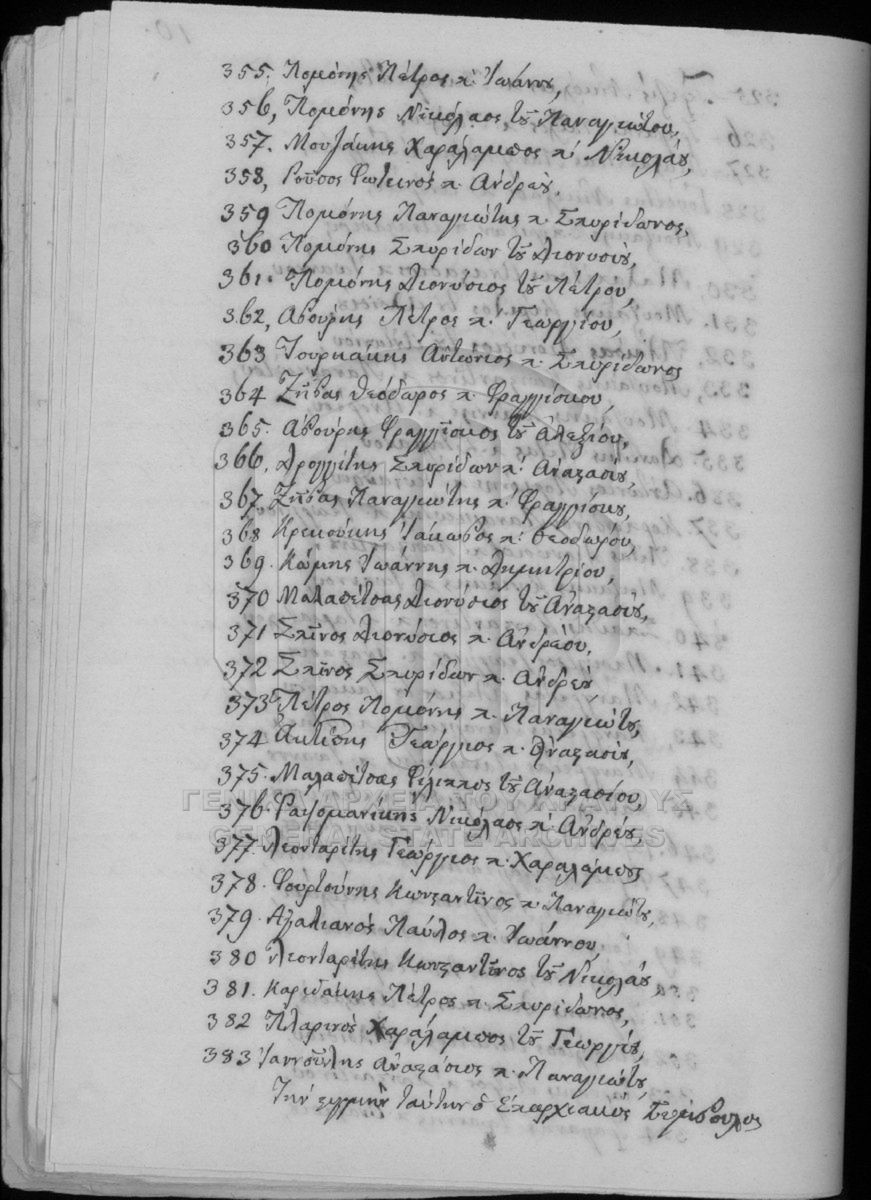 355. Πομόνης Πέτρος π. Ἰωάννου,
356, Πομόνης Νικόλαος τοῦ Παναγιώτου,
357. Μουζάκης Χαράλαμπος π. Νικολάου,
358, Ροῦσος Φωτεινός π. Ἀνδρέου,
359 Πομόνης Παναγιώτης π. Σπυρίδωνος,
360 Πομόνης Σπυρίδων τοῦ Διονυσίου,
361. Πομόνης Διονύσιος τοῦ Πέτρου,
362, Αβούρης Πέτρος π. Γεωργίου,
363 Τουρκάκης Αντώνιος π. Σπυρίδωνος
364 Ζήβας Θεόδωρος π. Φραγγίσκου,
365. Αβούρης Φραγγίσκος τοῦ Ἀλεξίου,
366, Δρογγίτης Σπυρίδων π. Ἀναστασίου,
367, Ζήβας Παναγιώτης π. Φραγγίσκου,
368 Κρεκούκης Ἰάκωβος π. Θεοδώρου,
369. Κόμης Ἰωάννης π. Δημητρίου,
370 Μαλαπέτσας Διονύσιος τοῦ Ἀναστασίου,
371 Σπῖνος Διονύσιος π. Ἀνδρέου,
372 Σπῖνος Σπυρίδων π. Ἀνδρέου
373 Πέτρος Πομόνης π. Παναγιώτου,
374 Γεώργιος π. Ἀναστασίου,
375. Μαλαπέτσας Φίλιππος τοῦ Ἀναστασίου,
ΓΕΝΙΚΑ ΑΡΧΕΙΑ ΤΟΥ ΚΡΑΤΟΥΣ
376. Ραψομανίκης Νικόλαος π. Ἀνδρέου,
GENERAL STATE ARCHIVES
377. Λεονταρίτης Γεώργιος π. Χαραλάμπους
378. Φουρτούνης Κωνσταντῖνος π. Παναγιώτου,
379. Αγαλιανός Παῦλος π. Ἰωάννου,
380 Λεονταρίτης Κωνσταντῖνος τοῦ Νικολάου,
381. Καριδάκης Πέτρος π. Σπυρίδωνος,
382 Πλαρινός Χαράλαμπος τοῦ Γεωργίου,
383 Ἰαννούλης Ἀναστάσιος π. Παναγιώτου,
Τήν στιγμήν ταύτην ὁ Ἐπαρχιακός